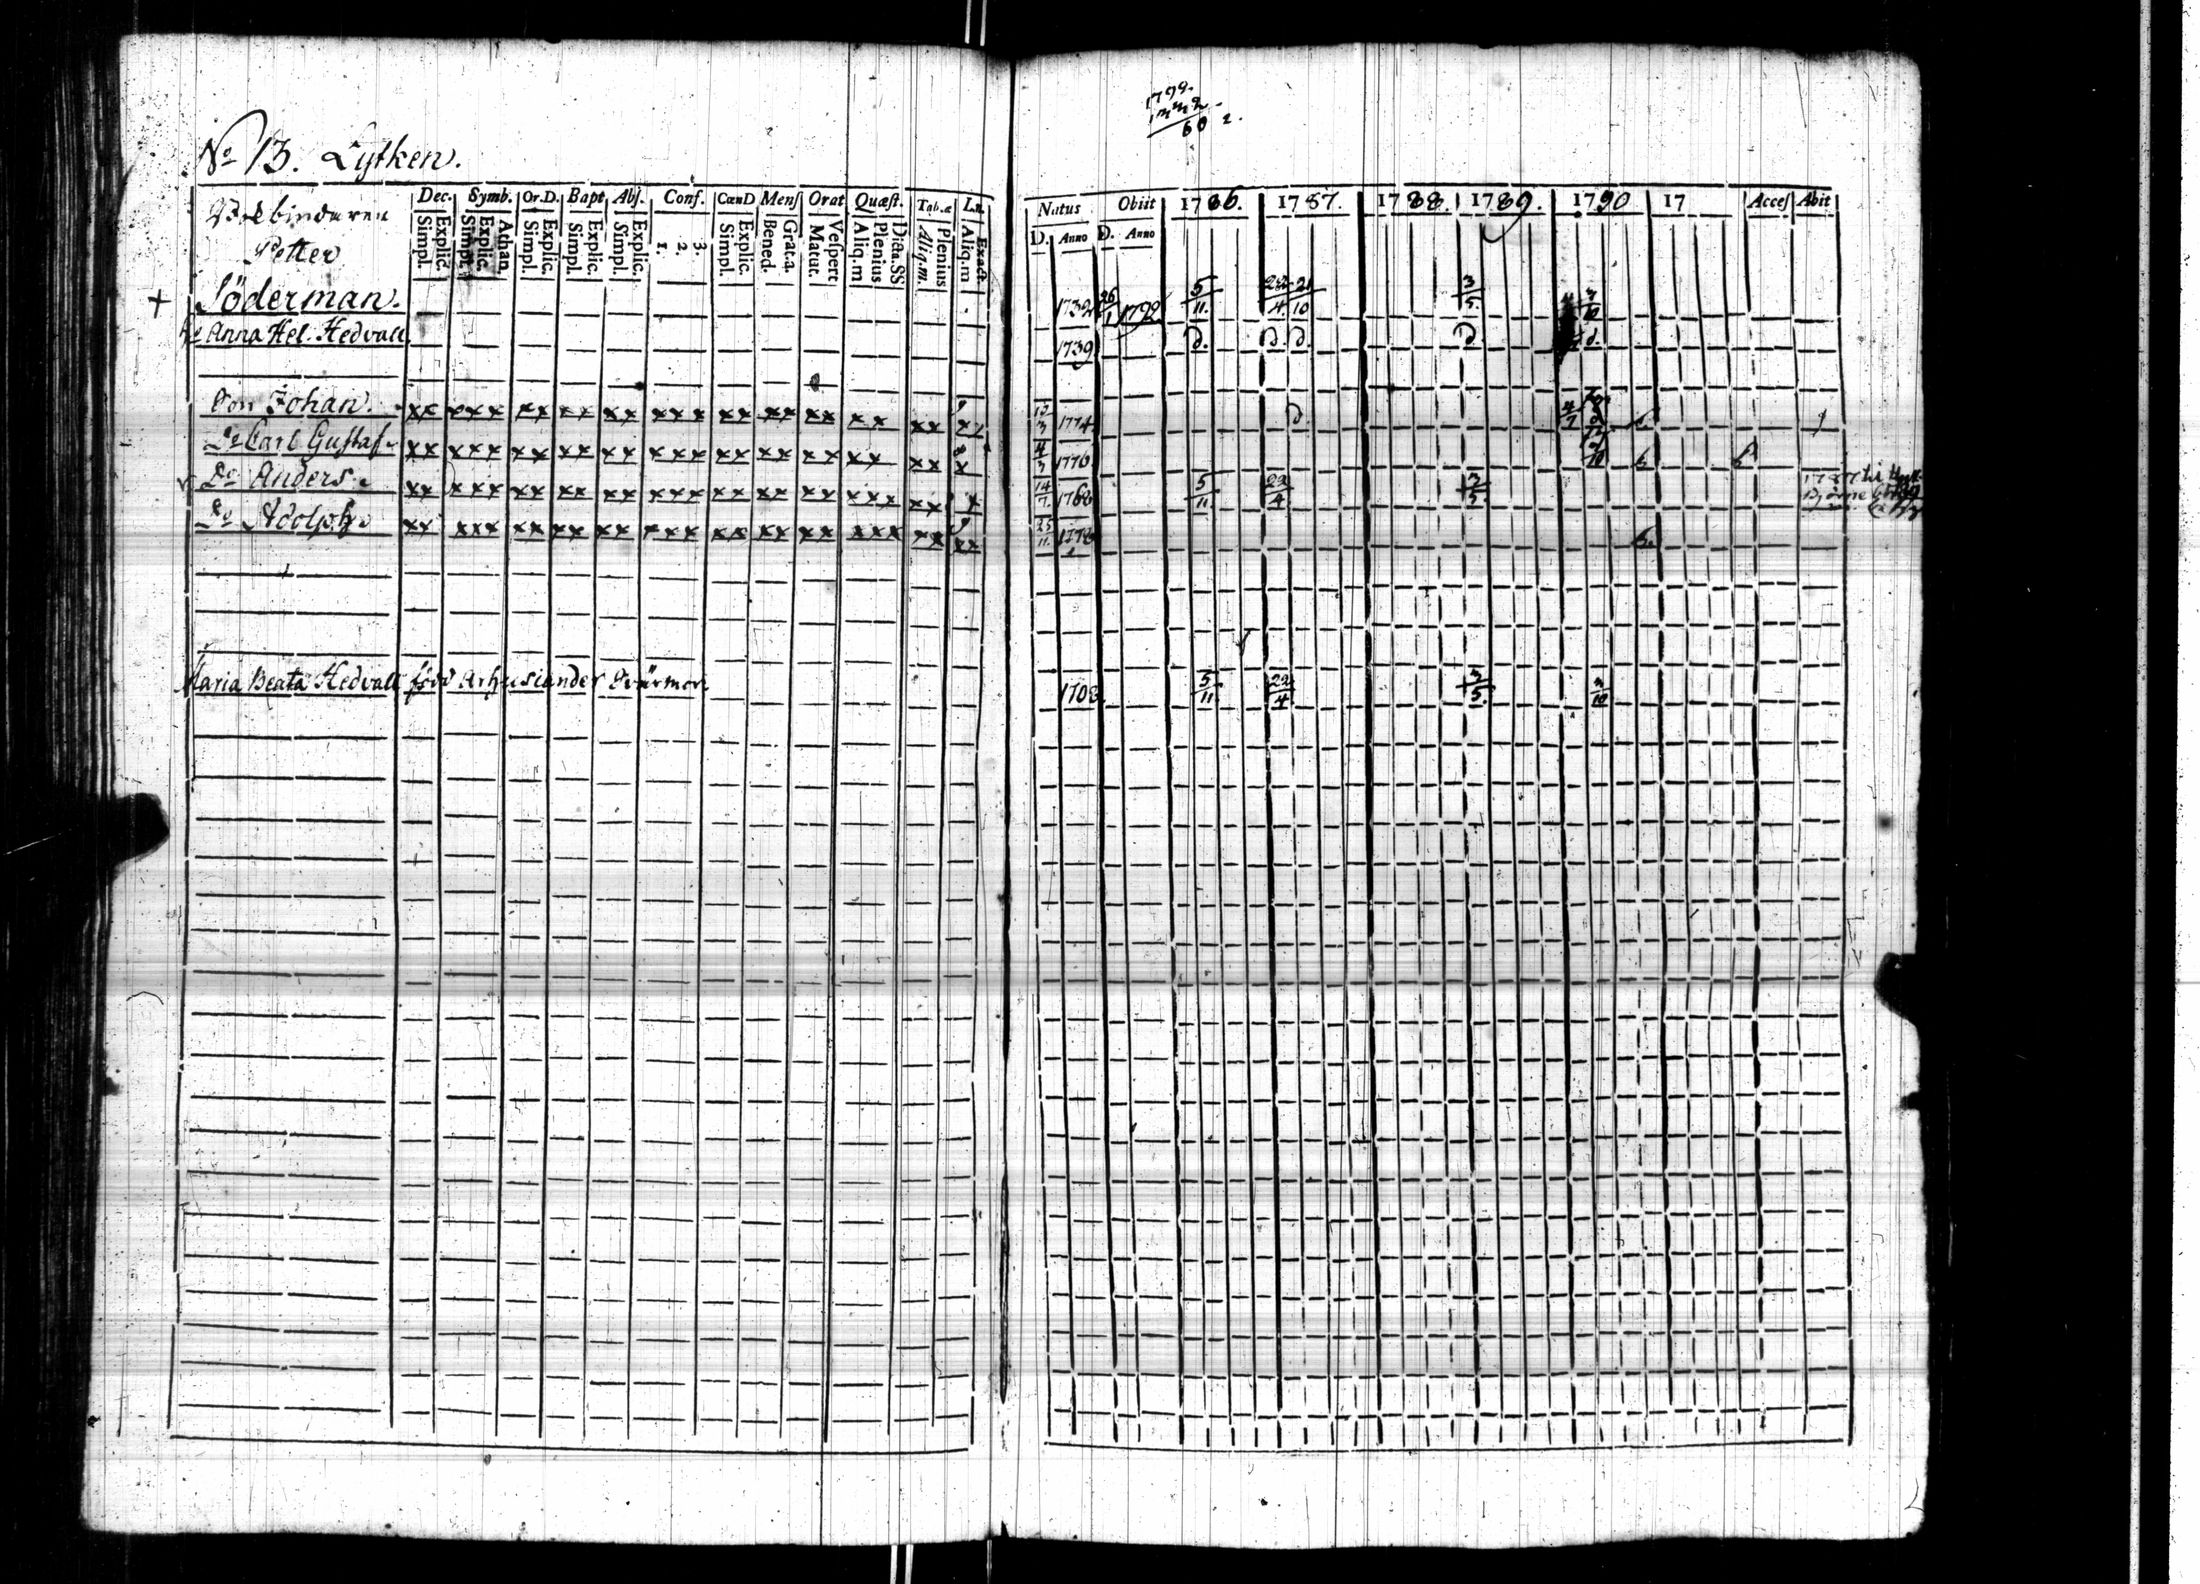 No 13. Lytken.
Dec. Symb. Or.D. Bapt Abs. Conf. CœnD Mens Orat Quæst. Tab.æ
Simpl. Explic. Simpl. Explic. Athan. Simpl. Explic. Simpl. Explic. Simpl. Explic. 1. 2. 3. Simpl. Explic. Bened. Grat.a. Matut. Vespert Aliq.m Plenius Dicta.SS Aliq.m. Plenius Aliq.m Exact
Bokbindaren
Petter
Söderman.
Anna Hel. Hedvall
Son Johan.
Do Carl Gustaf
Do Anders.
Do Adolph.
Maria Beata Hedvall född Svärmor
1799.
60
Natus Obiit 1786. 1787. 1788. 1789. 1790 17 Acces Abit
D. Anno D. Anno
1732 26/1 1792 5/11. 22/4. 21/10 3/5. 3/10
1739 D. D. D. D. d.
1774 D.
4/3 1776.
14/7 1768 5/11. 22/4 3/5. 1787 til
25/11 1778
1708. 5/11. 22/4 3/5. 3/10